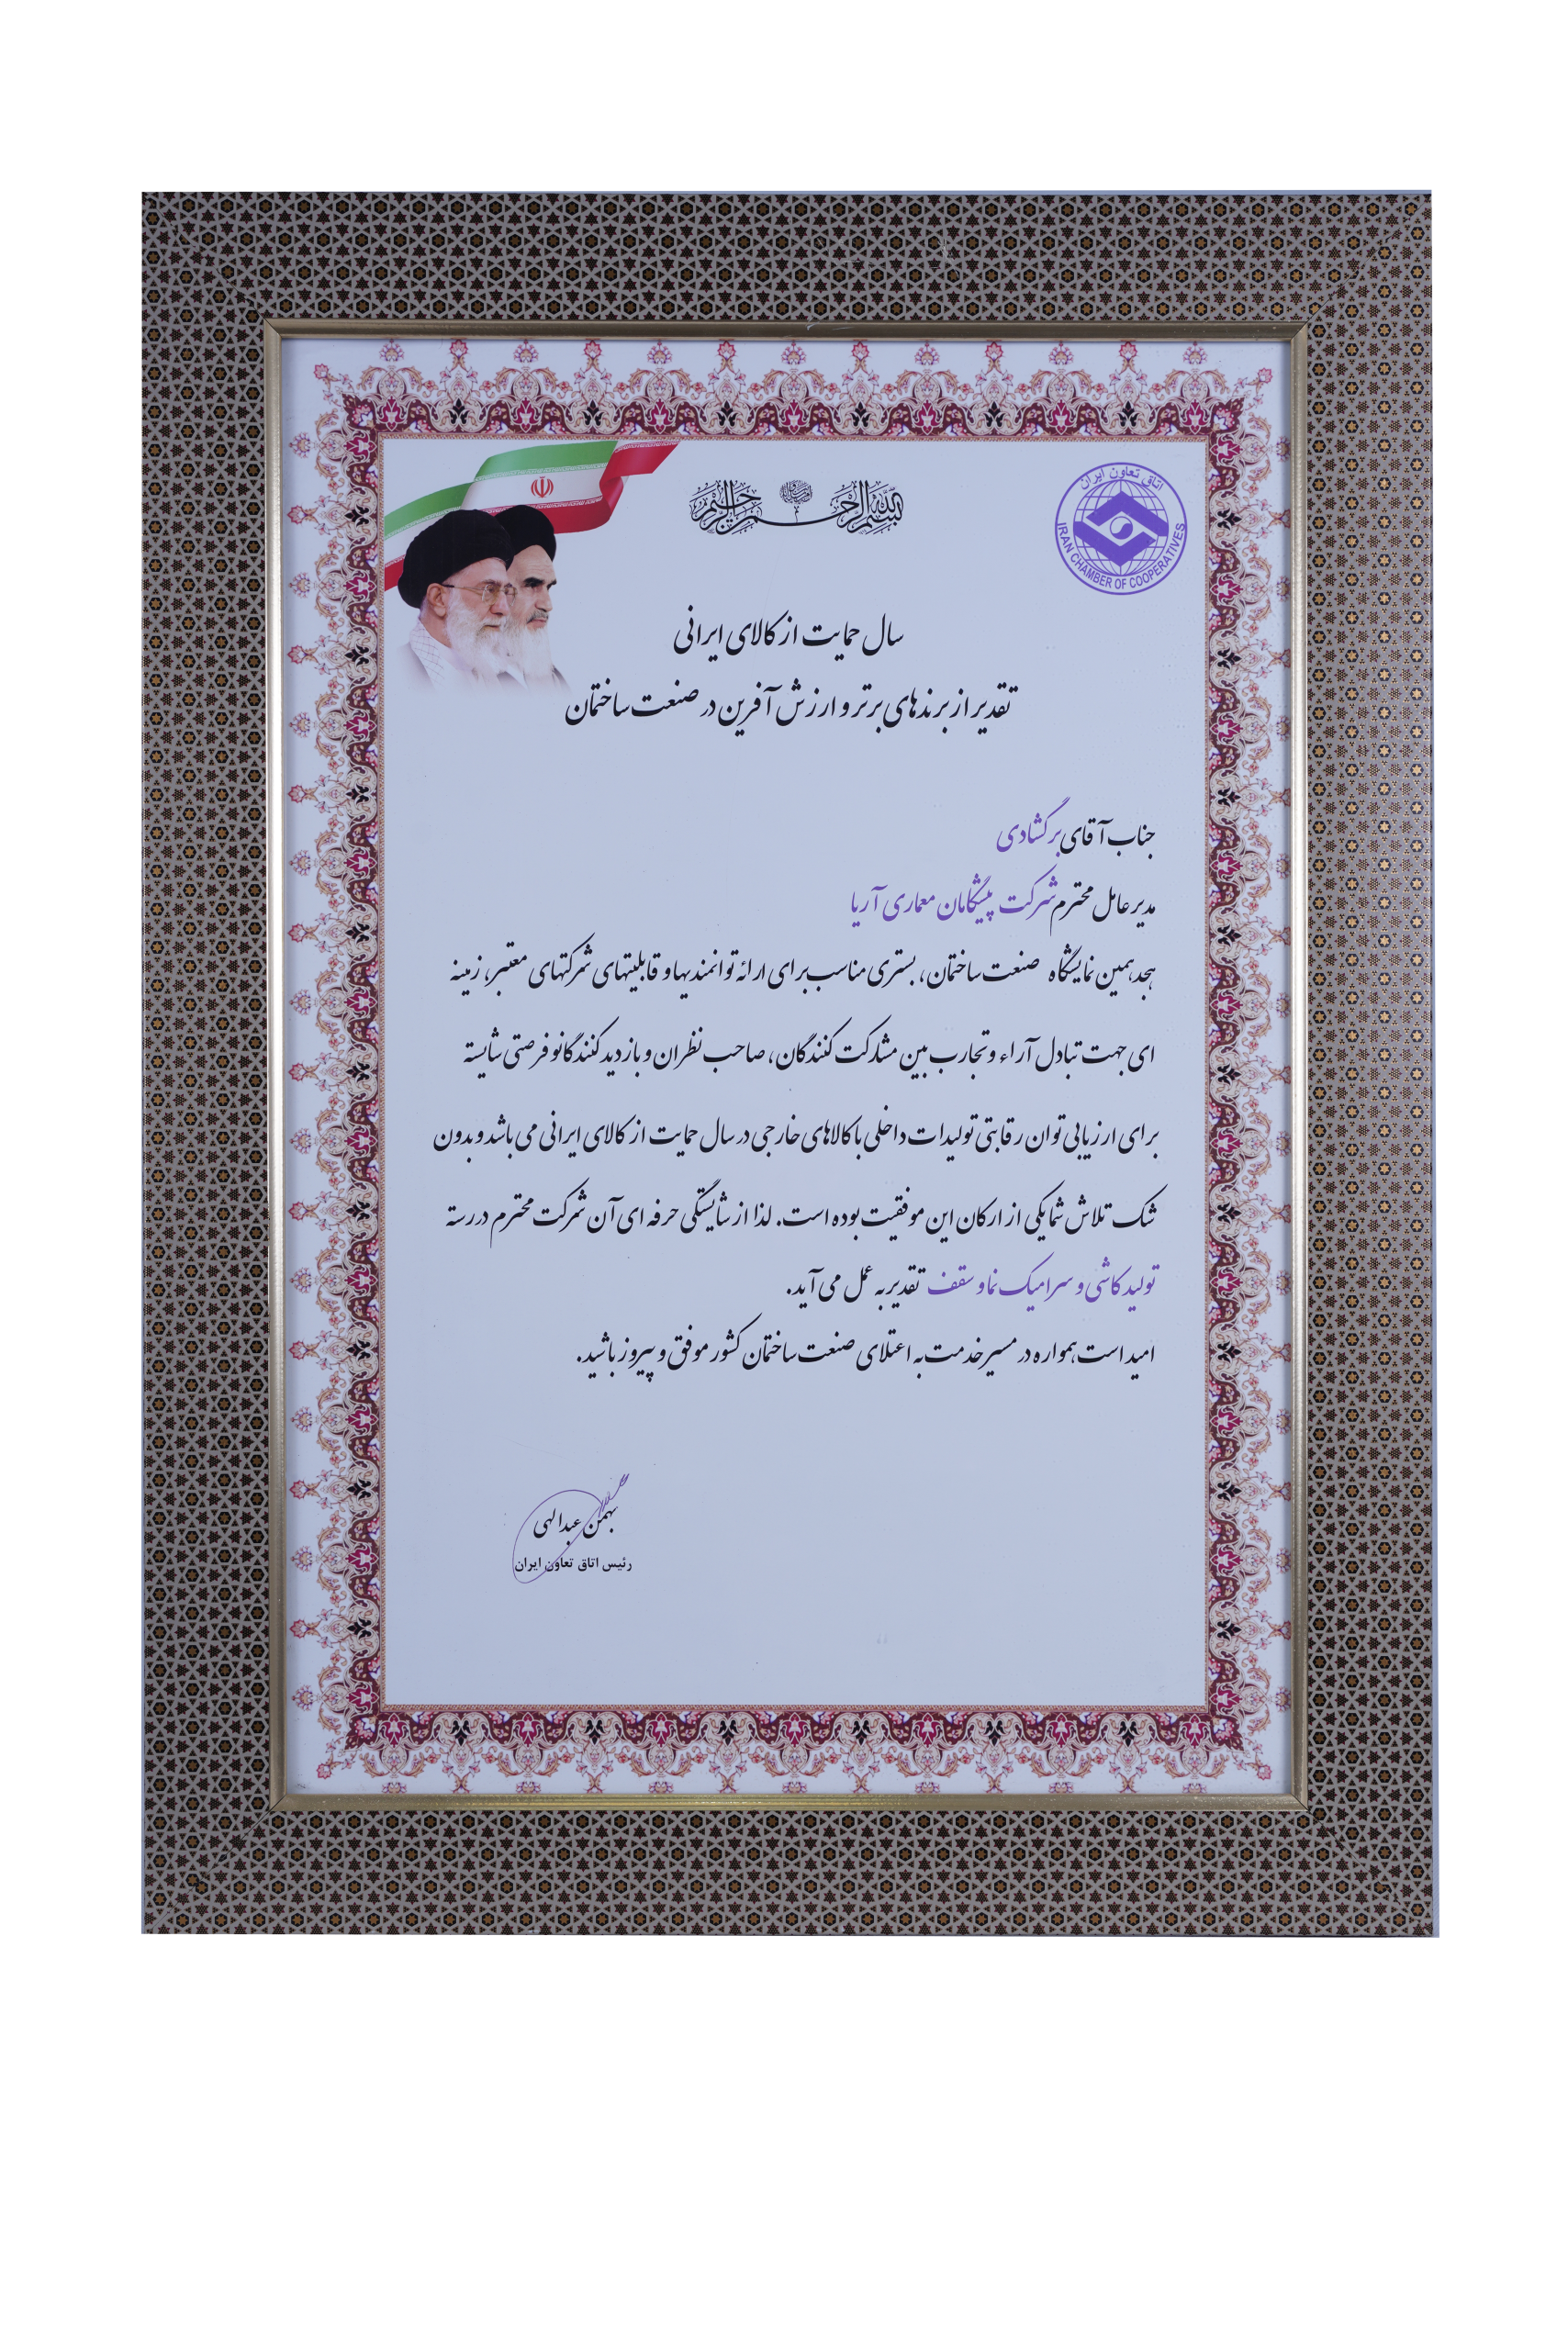 بسم الله الرحمن الرحیم
اتاق تعاون ایران
IRAN CHAMBER OF COOPERATIVES
سال حمایت از کالای ایرانی
تقدیر از برندهای برتر و ارزش آفرین در صنعت ساختمان
جناب آقای برگشادی
مدیر عامل محترم شرکت پیشگامان معماری آریا
هجدهمین نمایشگاه صنعت ساختمان، بستری مناسب برای ارائه توانمندیها و قابلیتهای شرکتهای معتبر، زمینه
ای جهت تبادل آراء و تجارب بین مشارکت کنندگان، صاحب نظران و بازدید کنندگانو فرصتی شایسته
برای ارزیابی توان رقابتی تولیدات داخلی با کالاهای خارجی در سال حمایت از کالای ایرانی می باشد و بدون
شک تلاش شما یکی از ارکان این موفقیت بوده است. لذا از شایستگی حرفه ای آن شرکت محترم در رسته
تولید کاشی و سرامیک نما و سقف تقدیر به عمل می آید.
امید است همواره در مسیر خدمت به اعتلای صنعت ساختمان کشور موفق و پیروز باشید.
بهمن عبدالهی
رئیس اتاق تعاون ایران